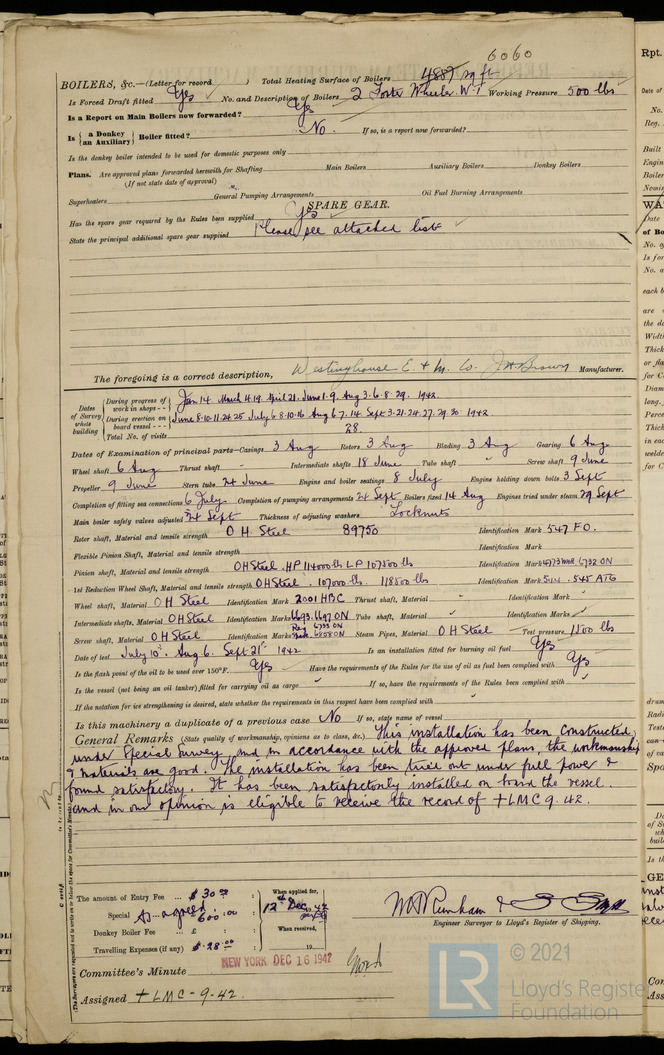 6060
BOILERS, &c.—(Letter for record ) Total Heating Surface of Boilers 4887 sq ft
Is Forced Draft fitted Yes No. and Description of Boilers 2 Foster Wheeler W.T Working Pressure 500 lbs
Is a Report on Main Boilers now forwarded? Yes
Is { a Donkey / an Auxiliary } Boiler fitted? No. If so, is a report now forwarded?
Is the donkey boiler intended to be used for domestic purposes only
Plans. Are approved plans forwarded herewith for Shafting Main Boilers Auxiliary Boilers Donkey Boilers
(If not state date of approval)
Superheaters General Pumping Arrangements Oil Fuel Burning Arrangements
SPARE GEAR.
Has the spare gear required by the Rules been supplied Yes
State the principal additional spare gear supplied Please see attached list
The foregoing is a correct description, Westinghouse E. & M. Co. Manufacturer.
Dates of Survey while building
During progress of work in shops -- Jan 14. March 4.19. April 21. June 1.9. Aug 3.6.8.29. 1942.
During erection on board vessel --- June 8.10.11.24.25 July 6.8.10.16 Aug 6.7.14. Sept 3.21.24.27.29.30 1942
Total No. of visits 28.
Dates of Examination of principal parts—Casings 3 Aug Rotors 3 Aug Blading 3 Aug Gearing 6 Aug
Wheel shaft 6 Aug Thrust shaft Intermediate shafts 18 June Tube shaft Screw shaft 9 June
Propeller 9 June Stern tube 24 June Engine and boiler seatings 8 July Engine holding down bolts 3 Sept
Completion of fitting sea connections 6 July Completion of pumping arrangements 24 Sept Boilers fixed 14 Aug Engines tried under steam 29 Sept
Main boiler safety valves adjusted 24 Sept Thickness of adjusting washers Locknuts
Rotor shaft, Material and tensile strength O H Steel 89750 Identification Mark 547 FO.
Flexible Pinion Shaft, Material and tensile strength Identification Mark
Pinion shaft, Material and tensile strength OH Steel. HP 114000 lbs LP 107500 lbs Identification Mark 6732 ON
1st Reduction Wheel Shaft, Material and tensile strength OH Steel. 107000 lbs. 118500 lbs Identification Mark 545 A76
Wheel shaft, Material O H Steel Identification Mark 2001 HBC Thrust shaft, Material Identification Mark
Intermediate shafts, Material O H Steel Identification Marks 6693. 6697 ON Tube shaft, Material Identification Marks
Screw shaft, Material O H Steel Identification Marks Steam Pipes, Material O H Steel Test pressure 1500 lbs
Date of test July 10. Aug 6. Sept 21st 1942 Is an installation fitted for burning oil fuel Yes
Is the flash point of the oil to be used over 150°F. Yes Have the requirements of the Rules for the use of oil as fuel been complied with Yes
Is the vessel (not being an oil tanker) fitted for carrying oil as cargo If so, have the requirements of the Rules been complied with
If the notation for ice strengthening is desired, state whether the requirements in this respect have been complied with
Is this machinery a duplicate of a previous case No If so, state name of vessel
General Remarks (State quality of workmanship, opinions as to class, &c.) This installation has been constructed
under Special Survey and in accordance with the approved plans, the workmanship
& materials are good. The installation has been tried out under full power &
found satisfactory. It has been satisfactorily installed on board the vessel.
and in our opinion is eligible to receive the record of +LMC 9.42.
The amount of Entry Fee .. $ 30.00 When applied for,
Special as agreed 600.00 12th Dec. 1942
Donkey Boiler Fee ... £ : : When received,
Travelling Expenses (if any) $ 28.00 19
Engineer Surveyor to Lloyd's Register of Shipping.
Committee's Minute NEW YORK DEC 16 1942
Assigned + LMC - 9-42.
LR © 2021
Lloyd's Register
Foundation